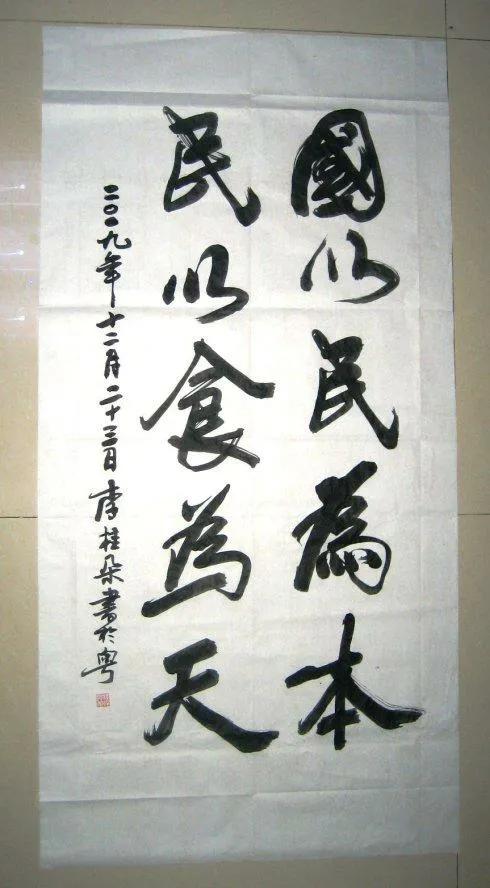 國以民為本
民以食為天
二〇一九年十二月二十三日李桂朵書於粵